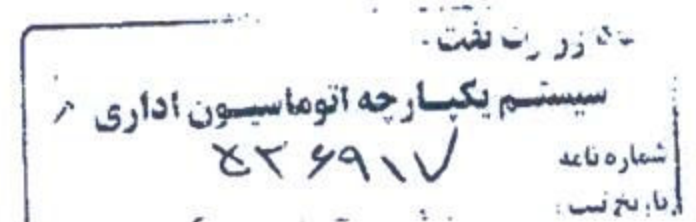 وزارت نفت
سیستم یکپارچه اتوماسیون اداری
شماره نامه ۴۳۶۹۱۷
تاریخ ثبت :